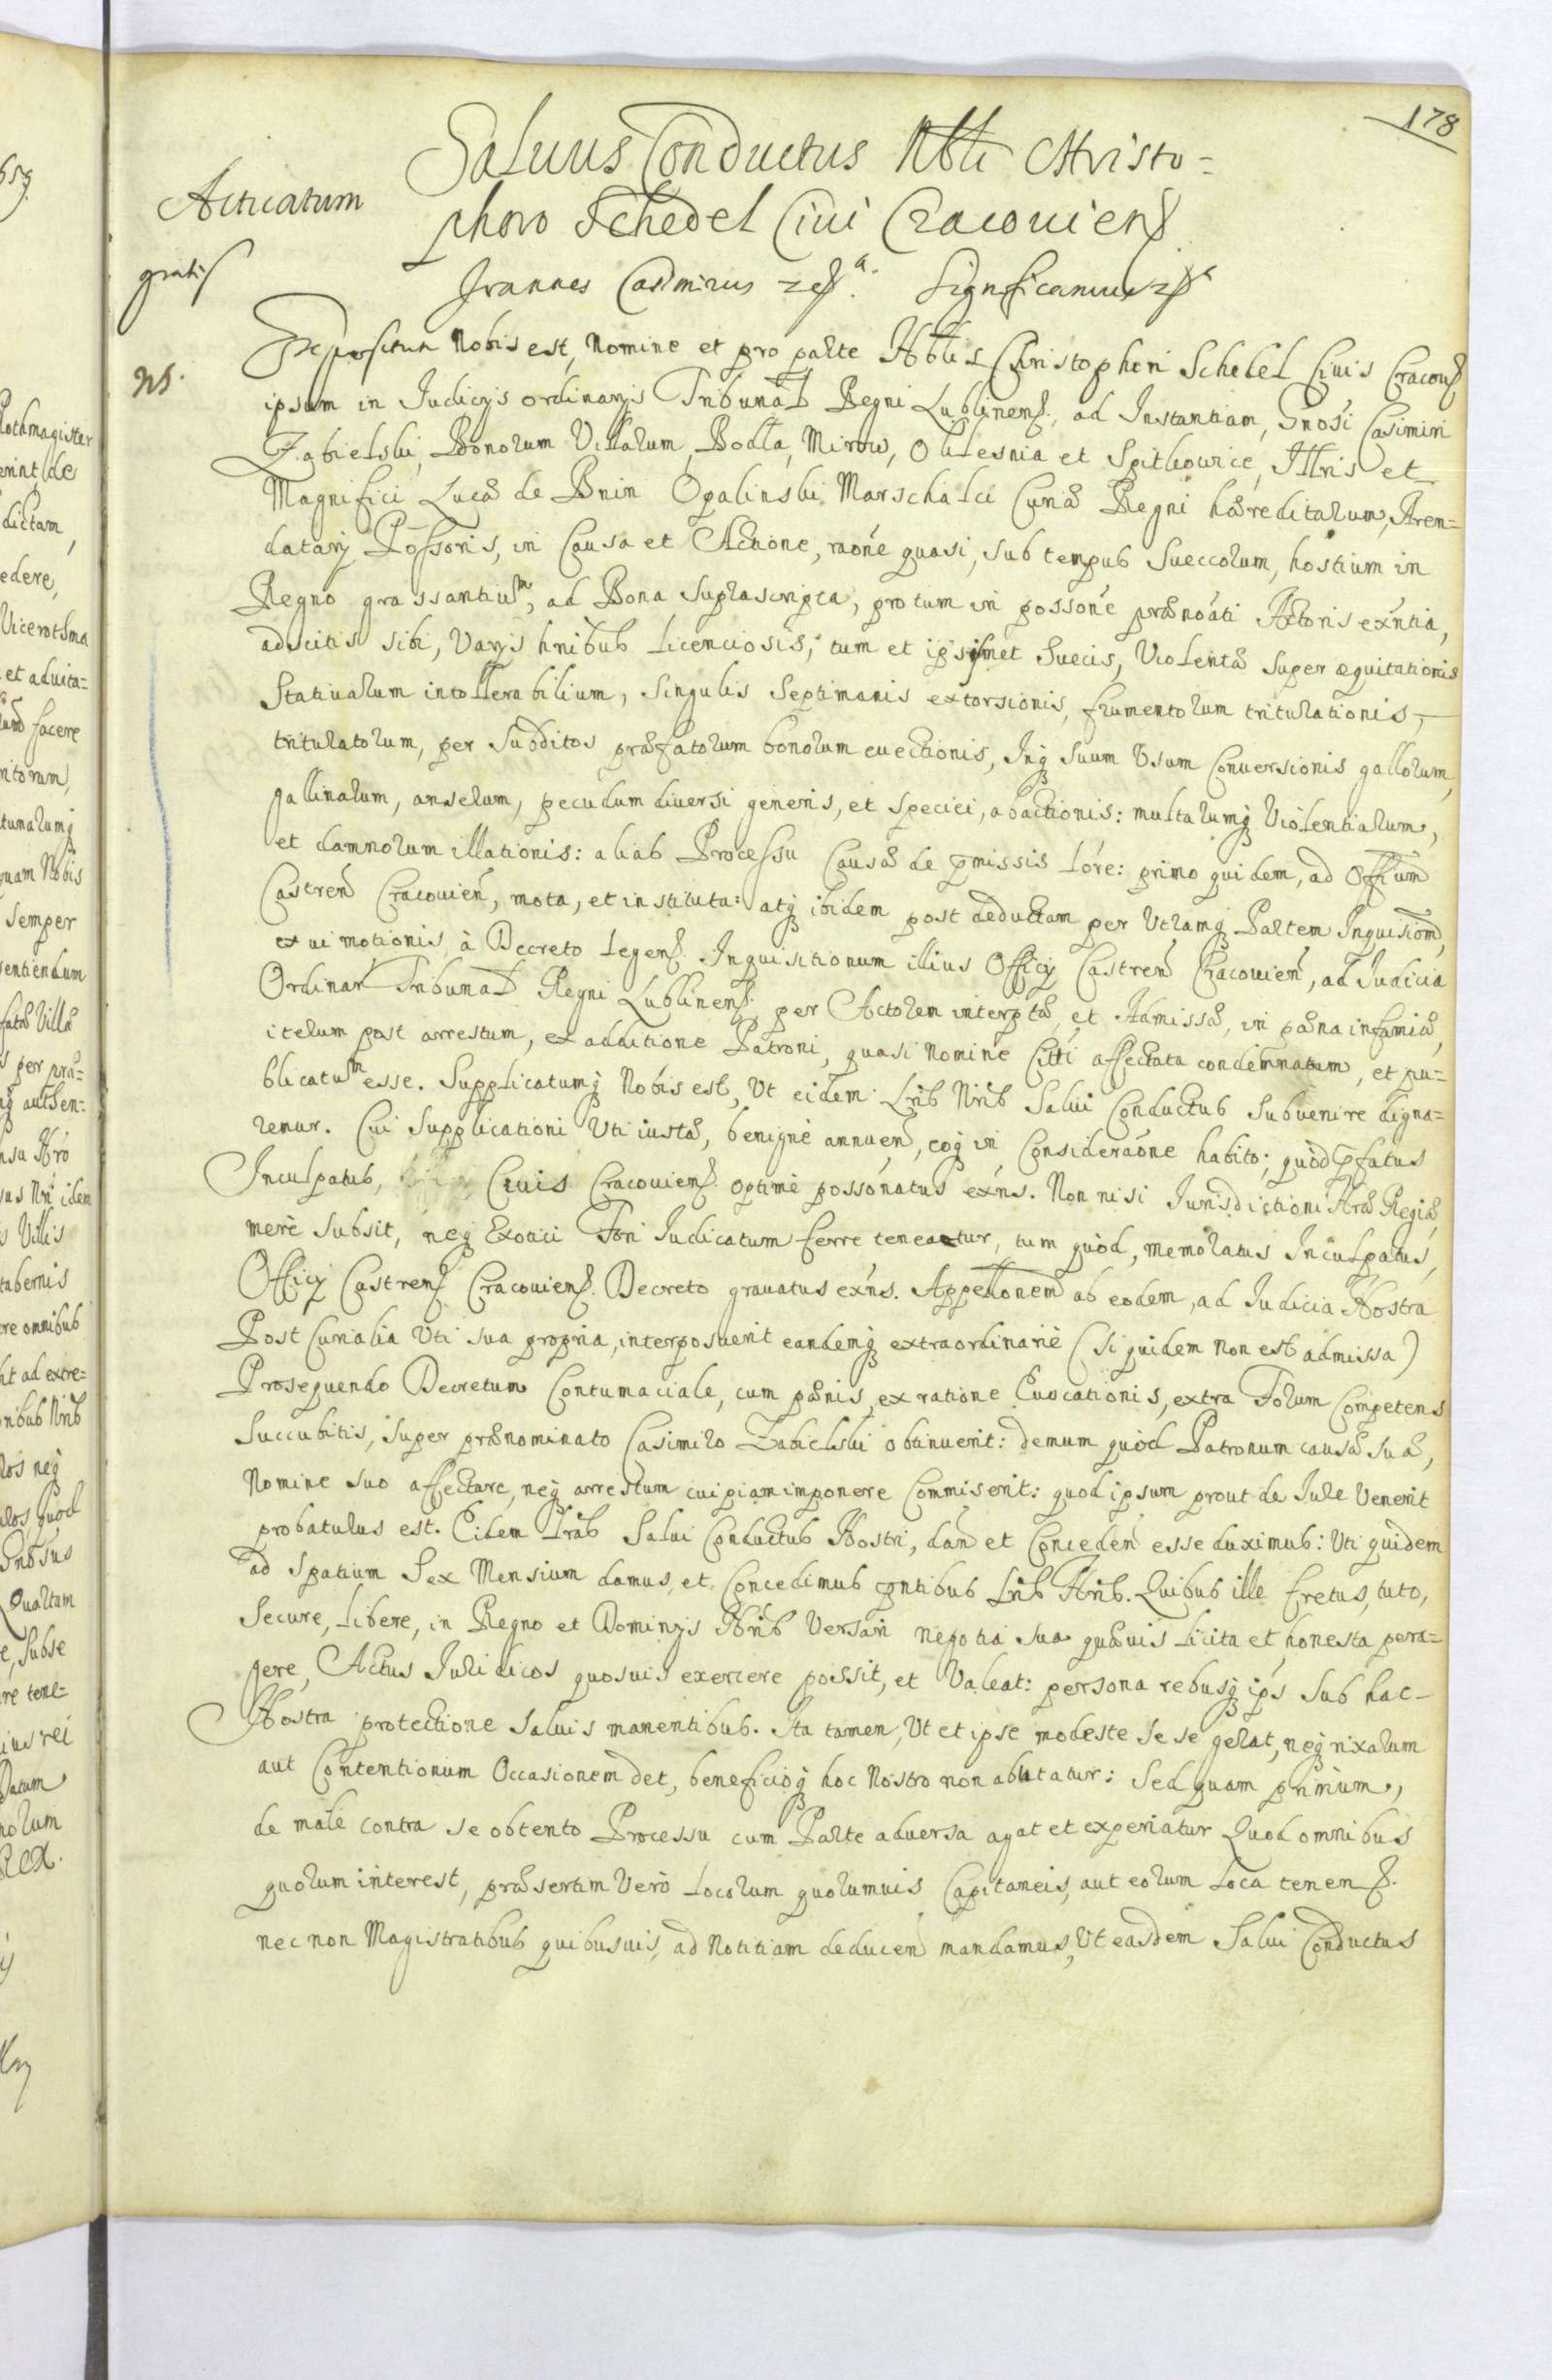 178
Saluus Conductus Nbli Christo=
phoro Schedel Ciui Cracouien.
Acticatum
gratis
Joannes Casimirus etc. Significamus etc.
NS.
Expositum Nobis est, Nomine et pro parte Nbilis Christopheri Schedel Ciuis Cracouien
ipsum in Judicijs ordinarijs Tribunal Regni Lublinens, ad Instantiam, Gnosi Casimiri
Zabielski, Bonorum Villarum, Modła, Mirow, Oklesnia et Spitkowice, Illris et
Magnifici Lucæ de Bnin Opalinski Marschalci Curiæ Regni hæreditarum, Aren=
datarij Possoris, in Causa et Actione, raone quasi, sub tempus Sueccorum, hostium in
Regno grassantium, ad Bona Suprascripta, pro tum in possone prænoati Actoris exntia,
adscitis sibi, Varijs hnibus licenciosis, tum et ipsismet Suecis, Violentæ super æquitationis
Statiuarum intollerabilium, singulis Septimanis extorsionis, frumentorum triturationis,
trituratorum, per Subditos præfatorum bonorum euectionis, Inq suum Vsum Conuersionis gallorum,
gallinarum, anserum, pecudum diuersi generis, et speciei, abactionis: multarumq Violentiarum,
et damnorum illationis: alias Processu Causæ de pmissis lore: primo quidem, ad Offium
Castren Cracouien, mota, et instituta: atq ibidem post deductam per Vtramq Partem Inquisiom,
ex ui motionis à Decreto legens. Inquisitionum illius Officij Castren Cracouien, ad Judicia
Ordinar Tribunal Regni Lublinens, per Actorem interptæ, et Admissæ, in pæna infamiæ,
iterum post arrestum, ex additione Patroni, quasi nomine Citti affectata condemnatum, et pu=
blicatum esse. Supplicatumq Nobis est, Vt eidem Lris Nris Salui Conductus Subuenire digna=
remur. Cui Supplicationi Vti iustæ, benignè annuen, eoq in Consideraone habito; quòd pfatus
Inculpatus, Ciuis Cracouiens. optimè possonatus exns. Non nisi Jurisdictioni Nræ Regiæ
merè subsit, neq Exotici Fori Judicatum ferre teneatur, tum quòd, memoratus Inculpatus,
Officij Castrens Cracouiens. Decreto grauatus exns. Appellonem ab eodem, ad Judicia Nostra
Post Curialia Vti sua propria, interposuerit eandemq extraordinariè (Si quidem non est admissa)
Prosequendo Decretum Contumaciale, cum pænis, ex ratione Euocationis, extra Forum Competens
Succubitis, super prænominato Casimiro Zabielski obtinuerit: demum quòd Patronum causæ suæ,
Nomine suo affectare, neq arrestum cuipiam imponere Commiserit: quod ipsum prout de Jure Venerit
probaturus est. Eidem Lras Salui Conductus Nostri, dan et Conceden esse duximus: Uti quidem
ad spatium Sex Mensium damus, et Concedimus pntibus Lris Nris. Quibus ille fretus, tuto,
Secure, libere, in Regno et Dominijs Nris Versari negotia sua quæuis licita et honesta pera=
gere, Actus Juridicos quosuis exercere possit, et Valeat: persona rebusq ips sub hac
Nostra protectione saluis manentibus. Ita tamen, Vt et ipse modeste se se gerat, neq rixarum
aut Contentionum Occasionem det, beneficioq hoc Nostro non abutatur: Sed quam primum,
de malè contra se obtento Processu cum Parte aduersa agat et experiatur Quod omnibus
quorum interest, præsertim Verò Locorum quorumuis Capitaneis, aut eorum Loca tenens.
nec non Magistratibus quibusuis, ad Notitiam deducen mandamus, Vt easdem Salui Conductus